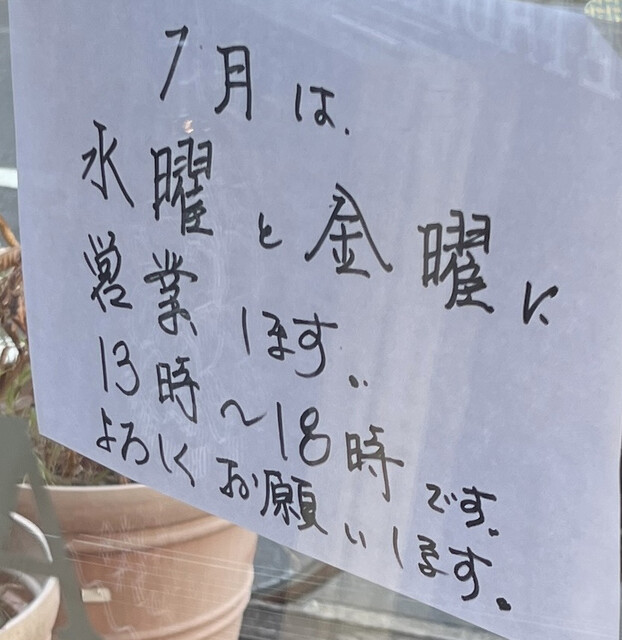 7月は、
水曜と金曜に
営業します。
13時～18時です。
よろしくお願いします。